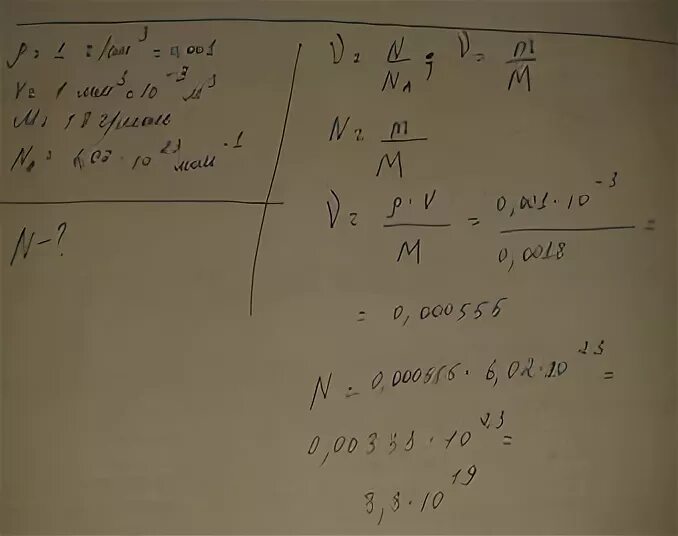 ρ = 1 г/см³ = 0,001
V = 1 мм³ = 10⁻³ м³
M = 18 г/моль
N_A = 6,02 · 10²³ моль⁻¹
N - ?
ν = N / N_A ; ν = m / M
N = m / M
ν = ρ · V / M = 0,001 · 10⁻³ / 0,0018 =
= 0,000555
N = 0,000555 · 6,02 · 10²³ =
0,00333 · 10²³ =
3,3 · 10¹⁹